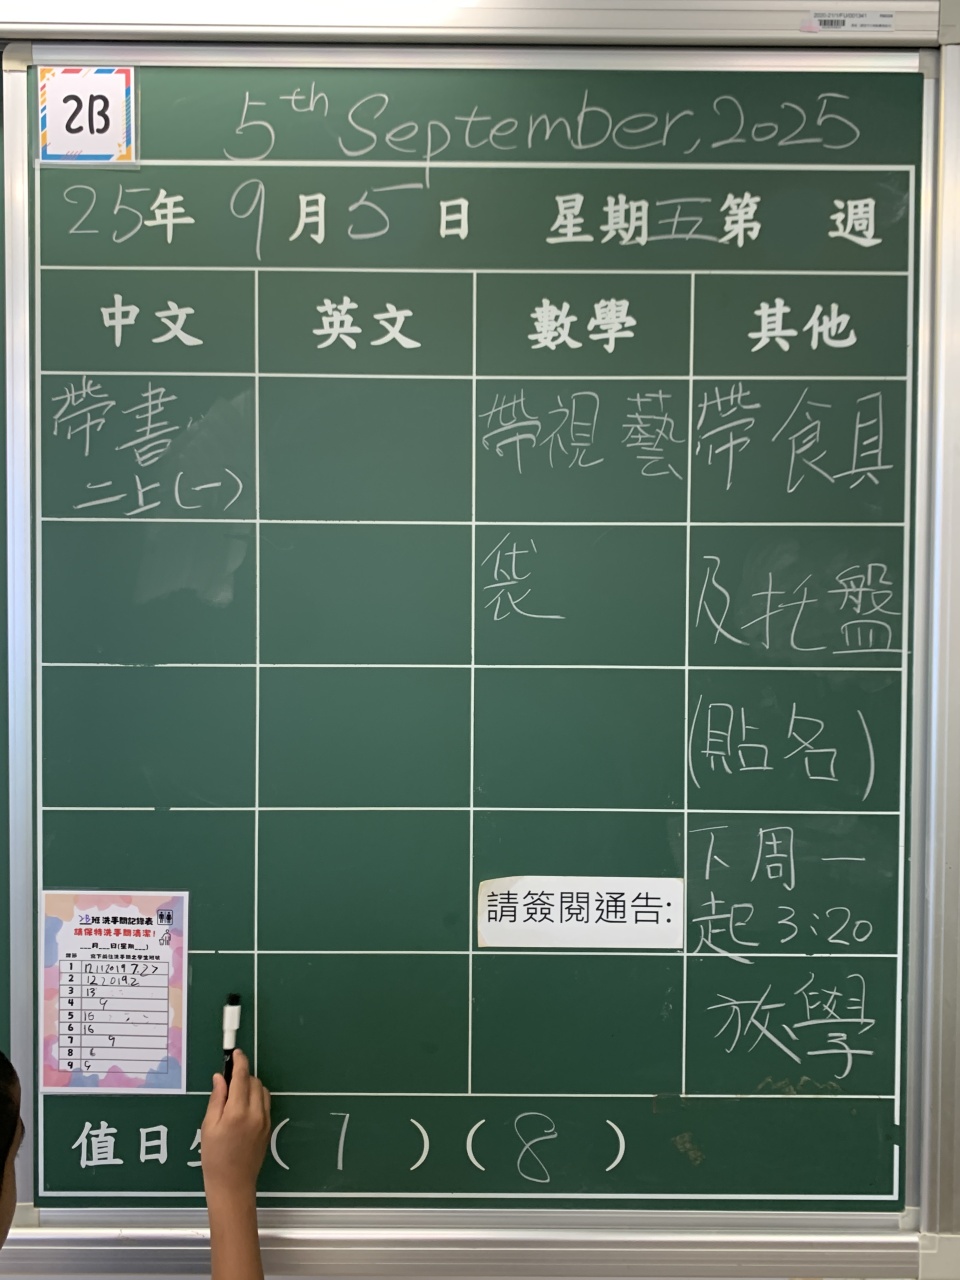 2B
5th September, 2025
25年 9月5日 星期五第 週
中文 英文 數學 其他
帶書
二上(一)
帶視藝
袋
帶食具
及托盤
(貼名)
下周一
起3:20
放學
請簽閱通告:
2B班洗手間記錄表
請保持洗手間清潔!
___月___日(星期___)
1
2
3 13
4 9
5 16
6 16
7 9
8 6
9
值日生 (7) (8)